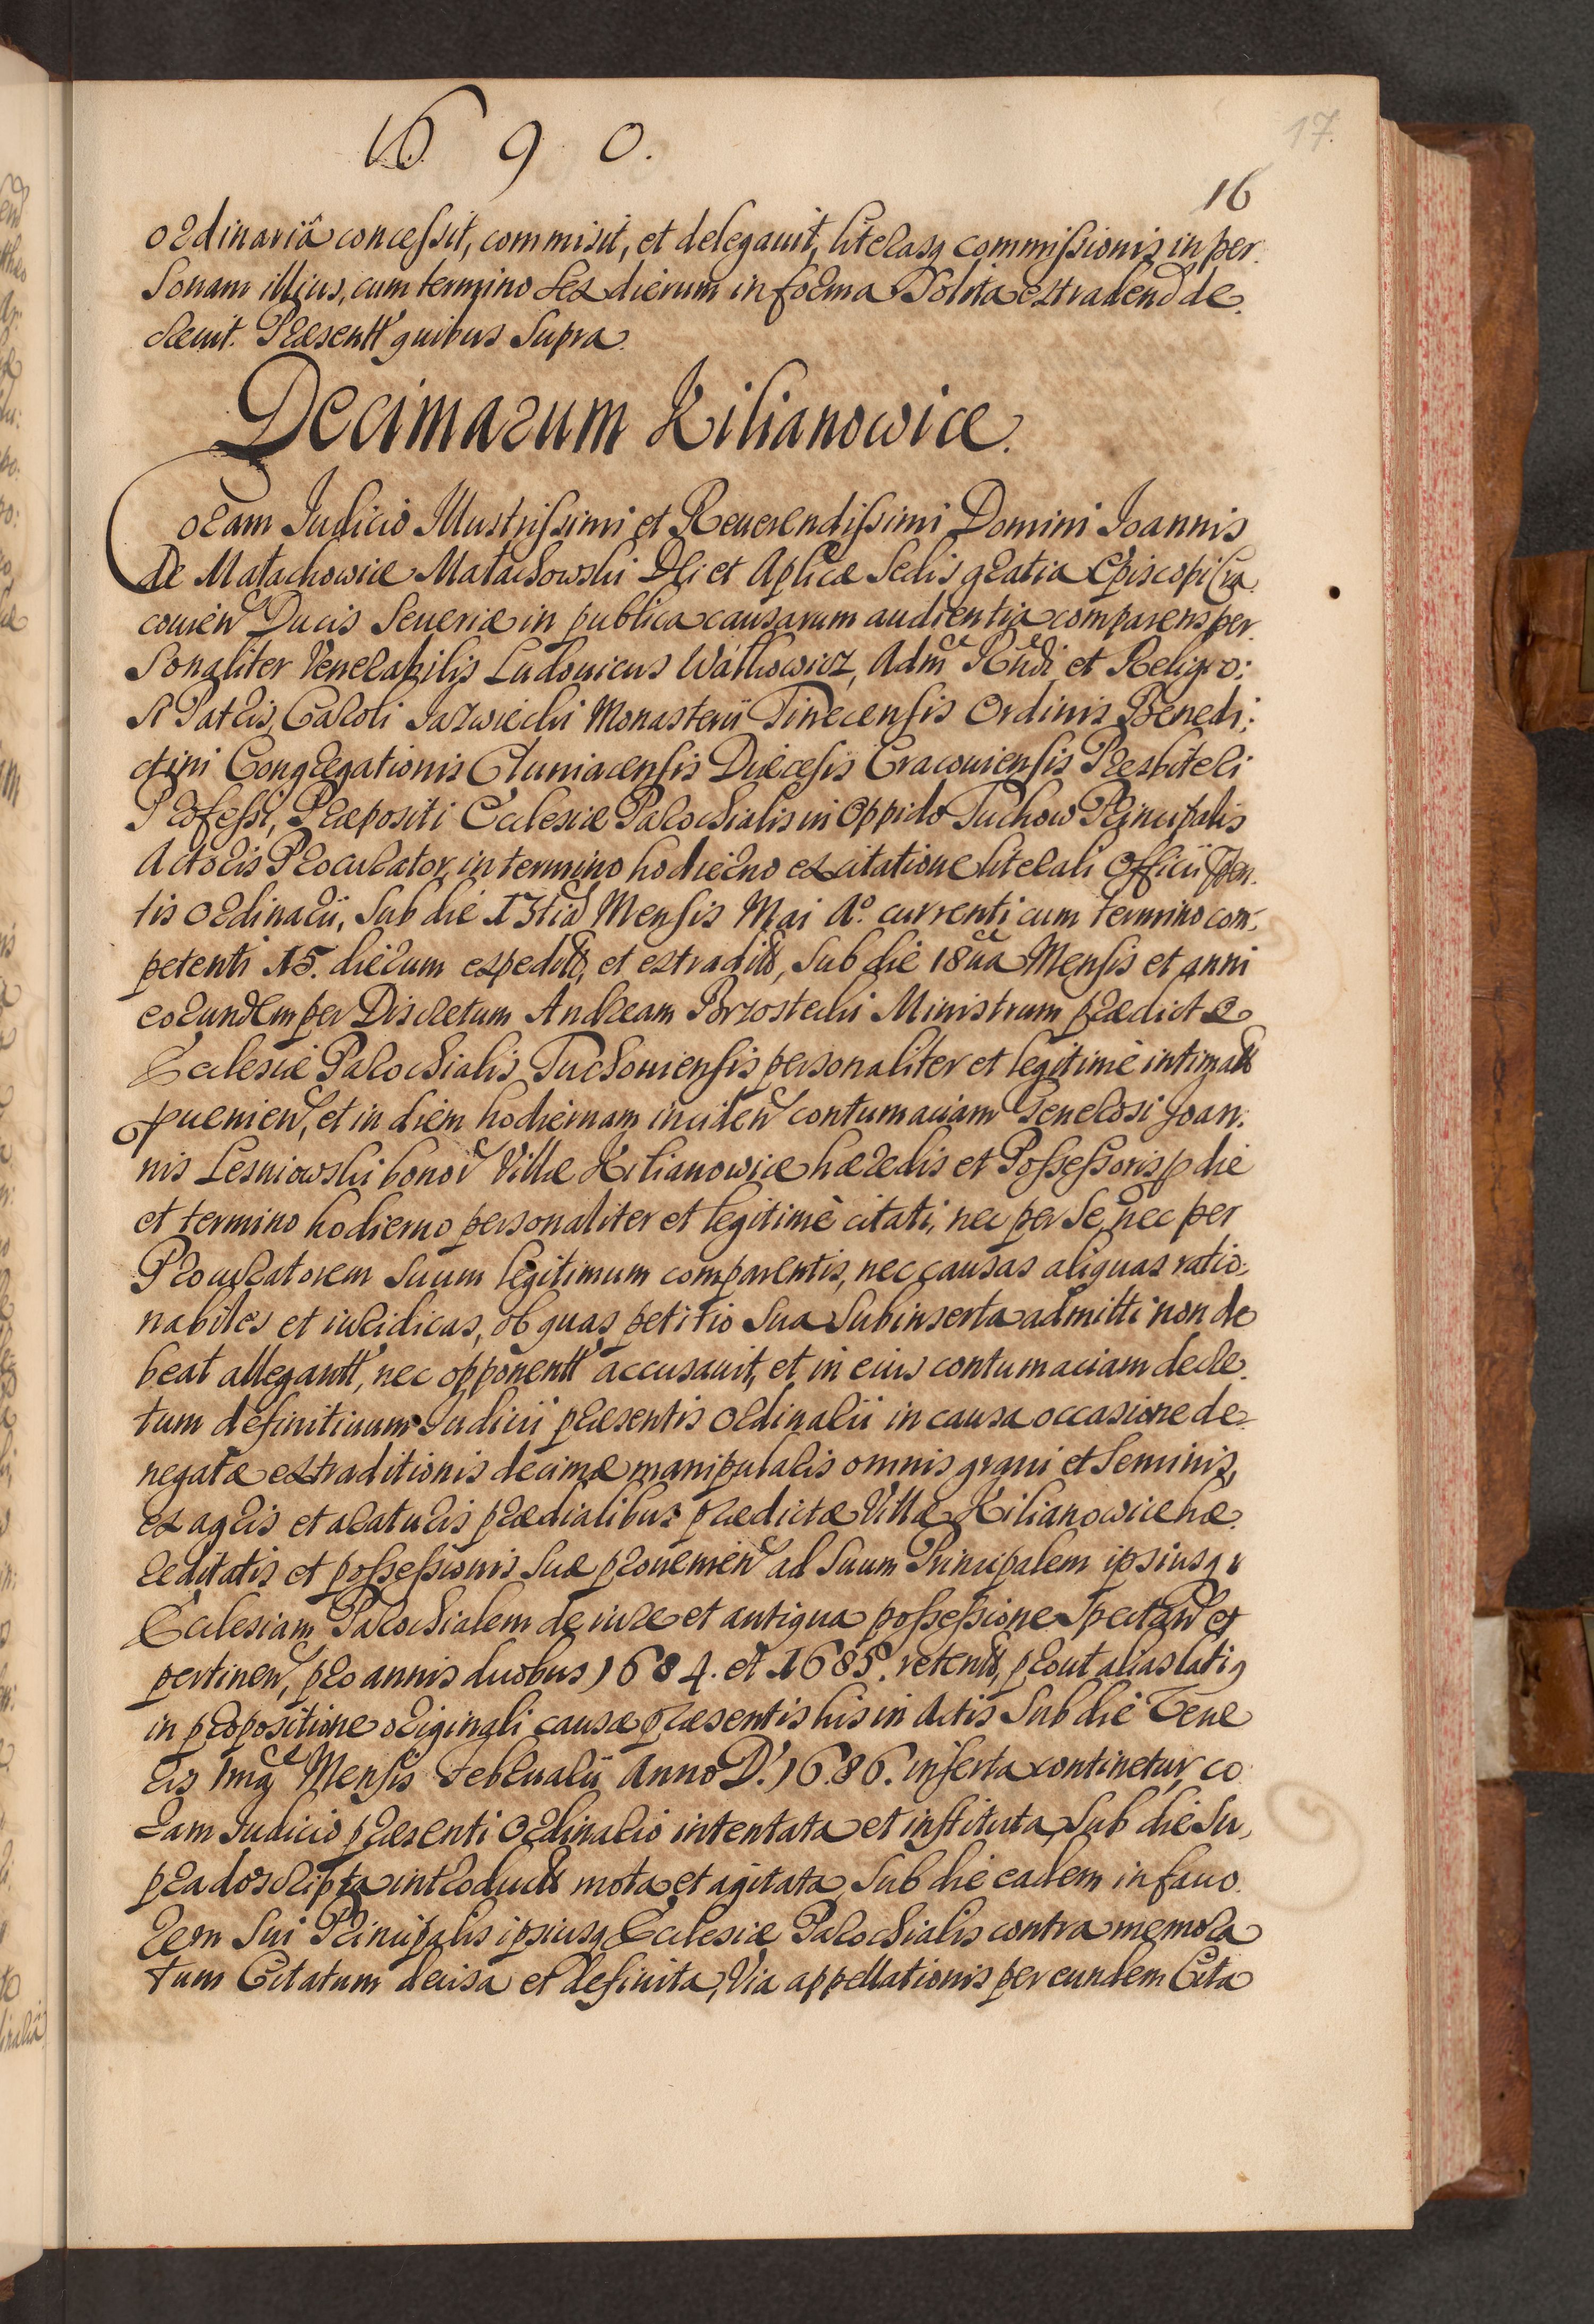 1690.
17.
16
ordinariâ concessit, commisit, et delegauit, literasq commissionis in per
sonam illius, cum termino sex dierum in forma solita extradend de
creuit. Praesentt quibus supra
Decimarum Kilianowice.
Coram Judicio Illustrissimi et Reuerendissimi Domini Joannis
de Małachowice Małachowski Dei et Aplicae Sedis gratia Episcopi Cra
couien Ducis Seueriae in publica causarum audientia comparens per
sonaliter Venerabilis Ludouicus Wathowicz, Adm Rndi et Religio:
si Patris Caroli Jazwiecki Monasterii Tinecensis Ordinis Benedi:
ctini Congregationis Cluniacensis Diecesis Cracouiensis Presbiteri
Professi, Praepositi Ecclesiae Parochialis in Oppido Tuchow Principalis
Actoris Procurator, in termino hodierno ex citatione literali Officii Praesen
tis Ordinarii, sub die 13tia Mensis Mai A° currenti cum termino com
petenti 15. dierum expedit, et extradit, sub die 18ua Mensis et anni
eorundem per Discretum Andream Brzostecki Ministrum praedictae
Ecclesiae Parochialis Tuchouiensis personaliter et legitimè intimatt
puenien, et in diem hodiernam inciden contumaciam Generosi Joan:
nis Lesniowski bonor Villae Kilianowice haeredis et Possessoris p die
et termino hodierno personaliter et legitimè citati, nec per se, nec per
Procuratorem suum legitimum comparentis, nec causas aliquas ratio:
nabiles et iuridicas, ob quas petitio sua subinserta admitti non de
beat allegantt, nec opponentt accusauit, et in eius contumaciam decre
tum definitiuum Judicii praesentis Ordinarii in causa occasione de
negatae extraditionis decimae manipularis omnis grani et seminis,
ex agris et araturis praedialibus praedictae Villae Kilianowice hae
reditatis et possessionis suae prouenien ad suum Principalem ipsiusq
Ecclesiam Parochialem de iure et antiqua possessione spectan et
pertinen, pro annis duobus 1684. et 1685. retent, prout alias lati9
in propositione originali causae praesentis his in Actis sub die Vene
ris 1ma Mensis Februarii Anno D. 1686. inserta continetur, co
ram Judicio praesenti Ordinario intentata et instituta, sub die su,
pradoscripta introduct mota et agitata, sub die eadem in fauo
rem sui Principalis ipsiusq Ecclesiae Parochialis contra memora
tum Citatum decisa et definita, Via appellationis per eundem Cita